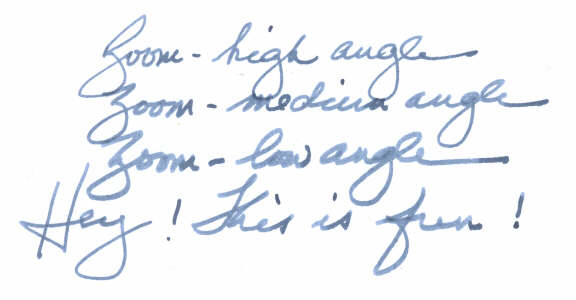 Zoom - high angle
Zoom - medium angle
Zoom - low angle
Hey! This is fun!